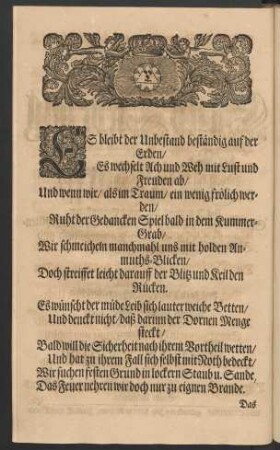 ES bleibt der Unbestand beständig auf der
Erden/
Es wechselt Ach und Weh mit Lust und
Freuden ab/
Und wenn wir/ als im Traum/ ein wenig frölich wer-
den/
Ruht der Gedancken Spiel bald in dem Kummer-
Grab/
Wir schmeicheln manchmahl uns mit holden An-
muths-Blicken/
Doch streiffet leicht darauff der Blitz und Keil den
Rücken.
Es wünscht der müde Leib sich lauter weiche Betten/
Und denckt nicht/ daß darinn der Dornen Menge
steckt/
Bald will die Sicherheit nach ihrem Vortheil wetten/
Und hat zu ihrem Fall sich selbst mit Noth bedeckt/
Wir suchen festen Grund in lockern Staub u. Sande,
Das Feuer nehren wir doch nur zu eignen Brande.
Das